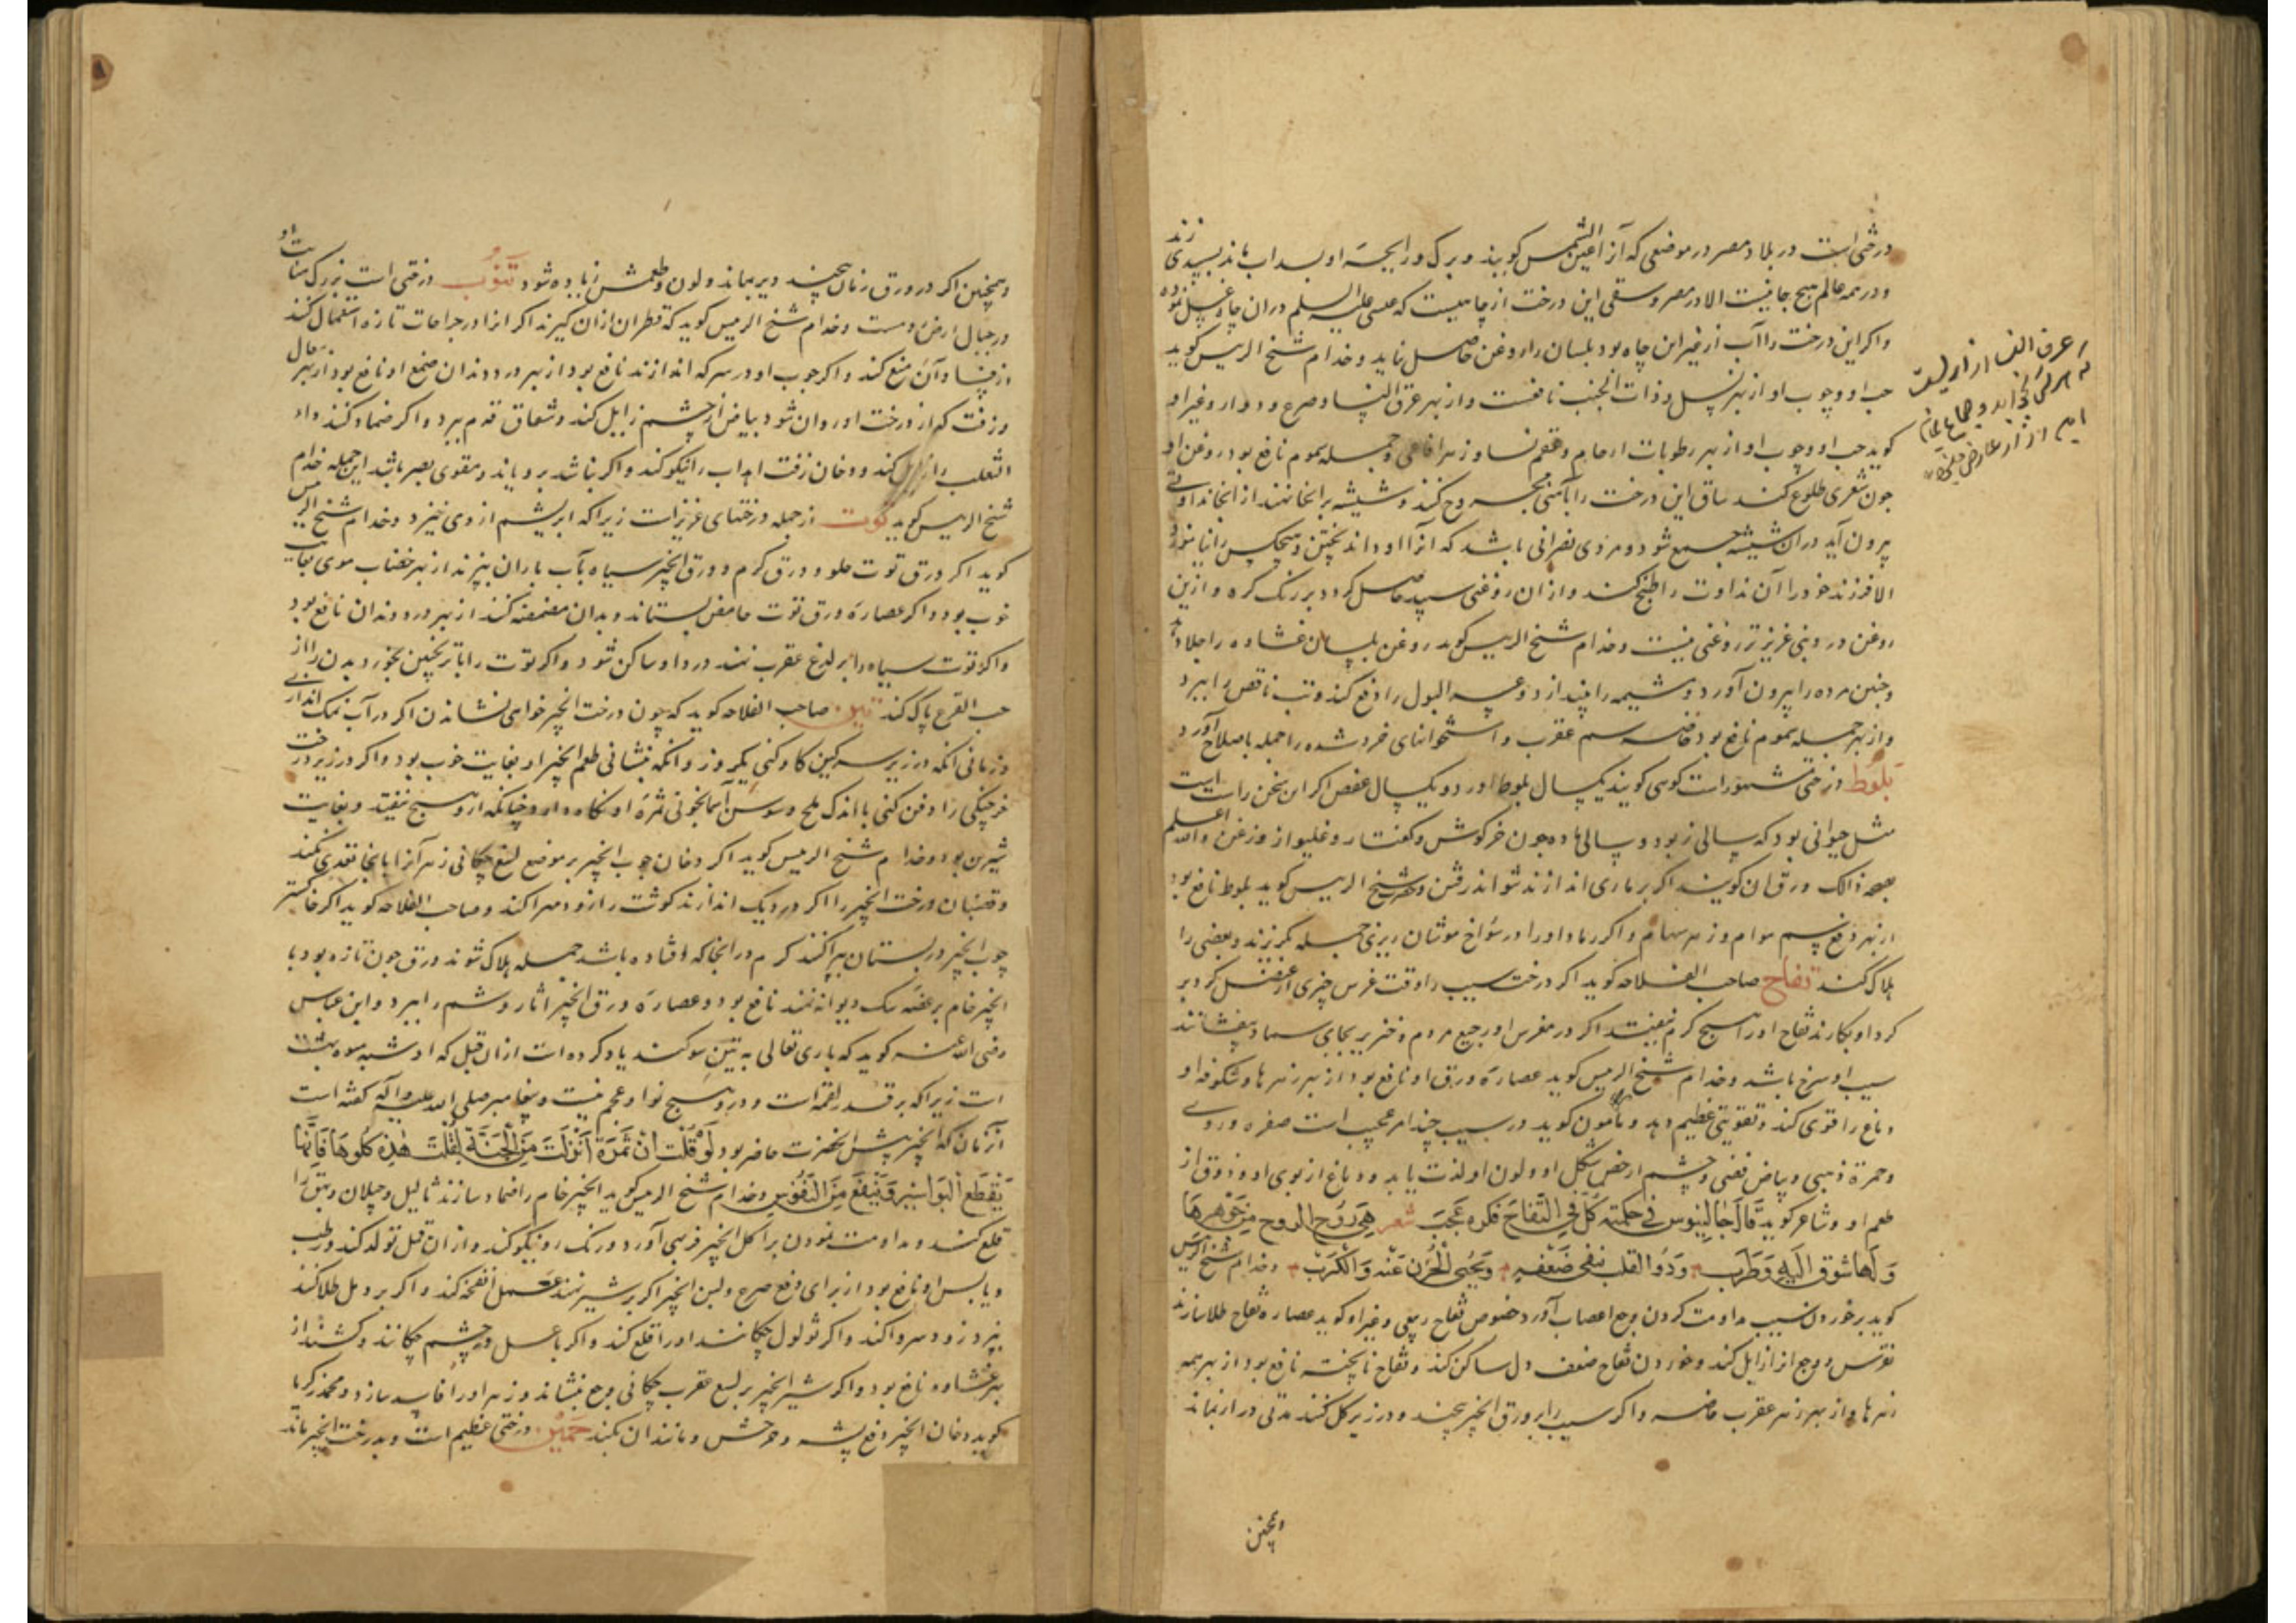 درختی است در بلاد مصر در موضعی که آنرا عین الشمس کویند و برک و رایحهٔ او بسداب ماند بسپیدی زند
و در همه عالم هیچ جا نیست الا در مصر و سقی این درخت از چاهیست که عیسی علیه السلم در ان چاه غسل نموده
و اکر این درخت را آب از غیر این چاه بود بلسان را روغن حاصل نیاید و خدام شیخ الرییس کوید
حب او و چوب او از بهر سل و ذات الجنب نافعست و از بهر عرق النسا و صرع و دوار و غیر او
کوید حب او و چوب او از بهر رطوبات ارحام و عقم نسا و زهر افاعی و جمله سموم نافع بود و روغن او
چون شعری طلوع کند ساق این درخت را بآهنی مجروح کنند و شیشه بر انجا نهند از انجا نداوتی
بیرون آید در ان شیشه جمع شود و مردی نصرانی باشد که آنرا او داند پختن و هیچکس را نیاموزد
الا فرزند خود را آن نداوت را طبخ کند و از ان روغنی سپید حاصل کردد بر رنک کره و ازین
روغن در دنیا عزیزتر روغنی نیست و خدام شیخ الرییس کوید روغن بلسان غشاوه را جلا دهد
و جنین مرده را بیرون آورد و مشیمه را بیندازد و عسر البول را دفع کند و تب ناقص را ببرد
و از بهر جمله سموم نافع بود خاصه سم عقرب و استخوانهای خرد شده را جمله باصلاح آورد
بلوط درختی مشهور است کوهی کویند یکسال بلوط آورد و یکسال عفص اکر این سخن راست است
مثل حیوانی بود که سالی نر بود و سالی ماده چون خرکوش و کفتار و غلیواز و زغن والله اعلم
بصحة ذالک ورق ان کویند اکر بر ماری اندازند نتواند رفتن و شیخ الرییس کوید بلوط نافع بود
از بهر دفع سم هوام و زهر سهام و اکر رماد او را در سوراخ موشان ریزی جمله بکریزند و بعضی را
هلاک کند تفاح صاحب الفلاحه کوید اکر درخت سیب را وقت غرس چیزی از عنصل کرد بر
کرد او بکارند تفاح او را هیچ کرم نیفتد اکر در مغرس او رجیع مردم و خنزیر بجای سماد بیفشانند
سیب او سرخ باشد و خدام شیخ الرییس کوید عصارهٔ ورق او نافع بود از بهر زهرها و شکوفهٔ او
دماغ را قوی کند و تقویتی عظیم دهد و مأمون کوید در سیب چند امر عجیب است صفره وردی
و حمرة ذهبی و بیاض فضی و چشم از شکل او و لون او لذت یابد و دماغ از بوی او و ذوق از
طعم او و شاعر کوید قال جالینوس فی حکمته کل فی التفاح فکره عجب شعر هی روح الروح من جوهرها
و لها شوق الیه و طرب و ذو القلب ینفی ضعفه و یحیی الحزن عنه و الکرب و خدام شیخ الرییس
کوید بر خوردن سیب مداومت کردن وجع اعصاب آورد خصوص تفاح ربیعی و غیر او کوید عصارهٔ تفاح طلا سازند
نقرس و وجع از ازایل کند و خوردن تفاح ضعف دل ساکن کند و تفاح نا پخته نافع بود از بهر همه
زهرها و از بهر زهر عقرب خاصه و اکر سیب را بر ورق انجیر پیچند و در زیر کل کنند مدتی دراز بماند
وهمچنین
وهمچنین اکر در ورق رمان پیچند دیر بماند و لون و طعمش زیاده شود تنوب درختی است بزرک منابت او
در جبال ارض روم است و خدام شیخ الرییس کوید که قطران ازان کیرند اکر انرا در جراحات تازه استعمال کنند
از فساد آن منع کند و اکر چوب او در سرکه اندازند نافع بود از بهر درد دندان صمغ او نافع بود از بهر سعال
و زفت که از درخت او روان شود بیاض از چشم زایل کند و شقاق قدم ببرد و اکر ضماد کنند داء
الثعلب را زایل کند و دخان زفت اهداب را نیکو کند و اکر نباشد برویاند و مقوی بصر باشد این جمله خدام
شیخ الرییس کوید توت از جمله درختهای عزیز است زیرا که ابریشم از وی خیزد و خدام شیخ الرییس
کوید اکر ورق توت حلو و ورق کرم و ورق انجیر سیاه بآب باران بپزند از بهر خضاب موی بغایت
خوب بود و اکر عصارهٔ ورق توت حامض بستانند و بدان مضمضه کنند از بهر درد دندان نافع بود
و اکر توت سیاه را بر لدغ عقرب نهند درد او ساکن شود و اکر توت را با تربچین بخورد بدن را از
حب القرع پاک کند تین صاحب الفلاحه کوید که چون درخت انجیر خواهی نشاندن اکر در آب نمک اندازی
و زمانی آنکه در زیر سرکین کاو کنی یکروز و آنکه بنشانی طعم انجیر او بغایت خوب بود و اکر در زیر درخت
خرچنکی را دفن کنی با اندک ملح و سوسن آسمانجونی ثمرهٔ او نکاه دارد چنانکه از و هیچ نیفتد و بغایت
شیرین بود و خدام شیخ الرییس کوید اکر دخان چوب انجیر بر موضع لسع چکانی زهر آنرا بانجا تعدی نکند
و قضبان درخت انجیر را اکر در دیک اندازند کوشت را زود مهرا کند و صاحب الفلاحه کوید اکر خاکستر
چوب انجیر در بستان بپراکنند کرم در انجا که افتاده باشد جمله هلاک شوند ورق چون تازه بود با
انجیر خام بر عضهٔ سک دیوانه نهند نافع بود و عصارهٔ ورق انجیر آثار وشم را ببرد و ابن عباس
رضی الله عنه کوید که باری تعالی به تین سوکند یاد کرده است ازان قبل که او شبیه میوه بهشت
است زیرا که بر قدر لقمه است و در و هیچ نوا و عجم نیست و پیغامبر صلی الله علیه و آله کفته است
آنزمان که انجیر پیش انحضرت حاضر بود لو قلت ان ثمرة انزلت من الجنة لقلت هذه کلوها فانها
یقطع البواسیر و ینفع من النقرس و خدام شیخ الرییس کوید انجیر خام را ضماد سازند ثالیل و خیلان و بهق را
قلع کند و مداومت نمودن بر اکل انجیر فربهی آورد و رنک رو نیکو کند و ازان قمل تولد کند و رطب
و یابس او نافع بود از برای دفع صرع و لبن انجیر اکر بر شیر نهند عمل انفحه کند و اکر بر دمل طلا کنند
بپزد و زود سر وا کند و اکر بر ثولول چکانند او را قلع کند و اکر با عسل در چشم چکانند و کشند از
بهر غشاوه نافع بود و اکر شیر انجیر بر لسع عقرب چکانی وجع بنشاند و زهر او را فاسد سازد و محمد زکریا
کوید دخان انجیر دفع پشه و خرخش و مانند ان بکند جمیز درختی عظیم است و بدرخت انجیر ماند